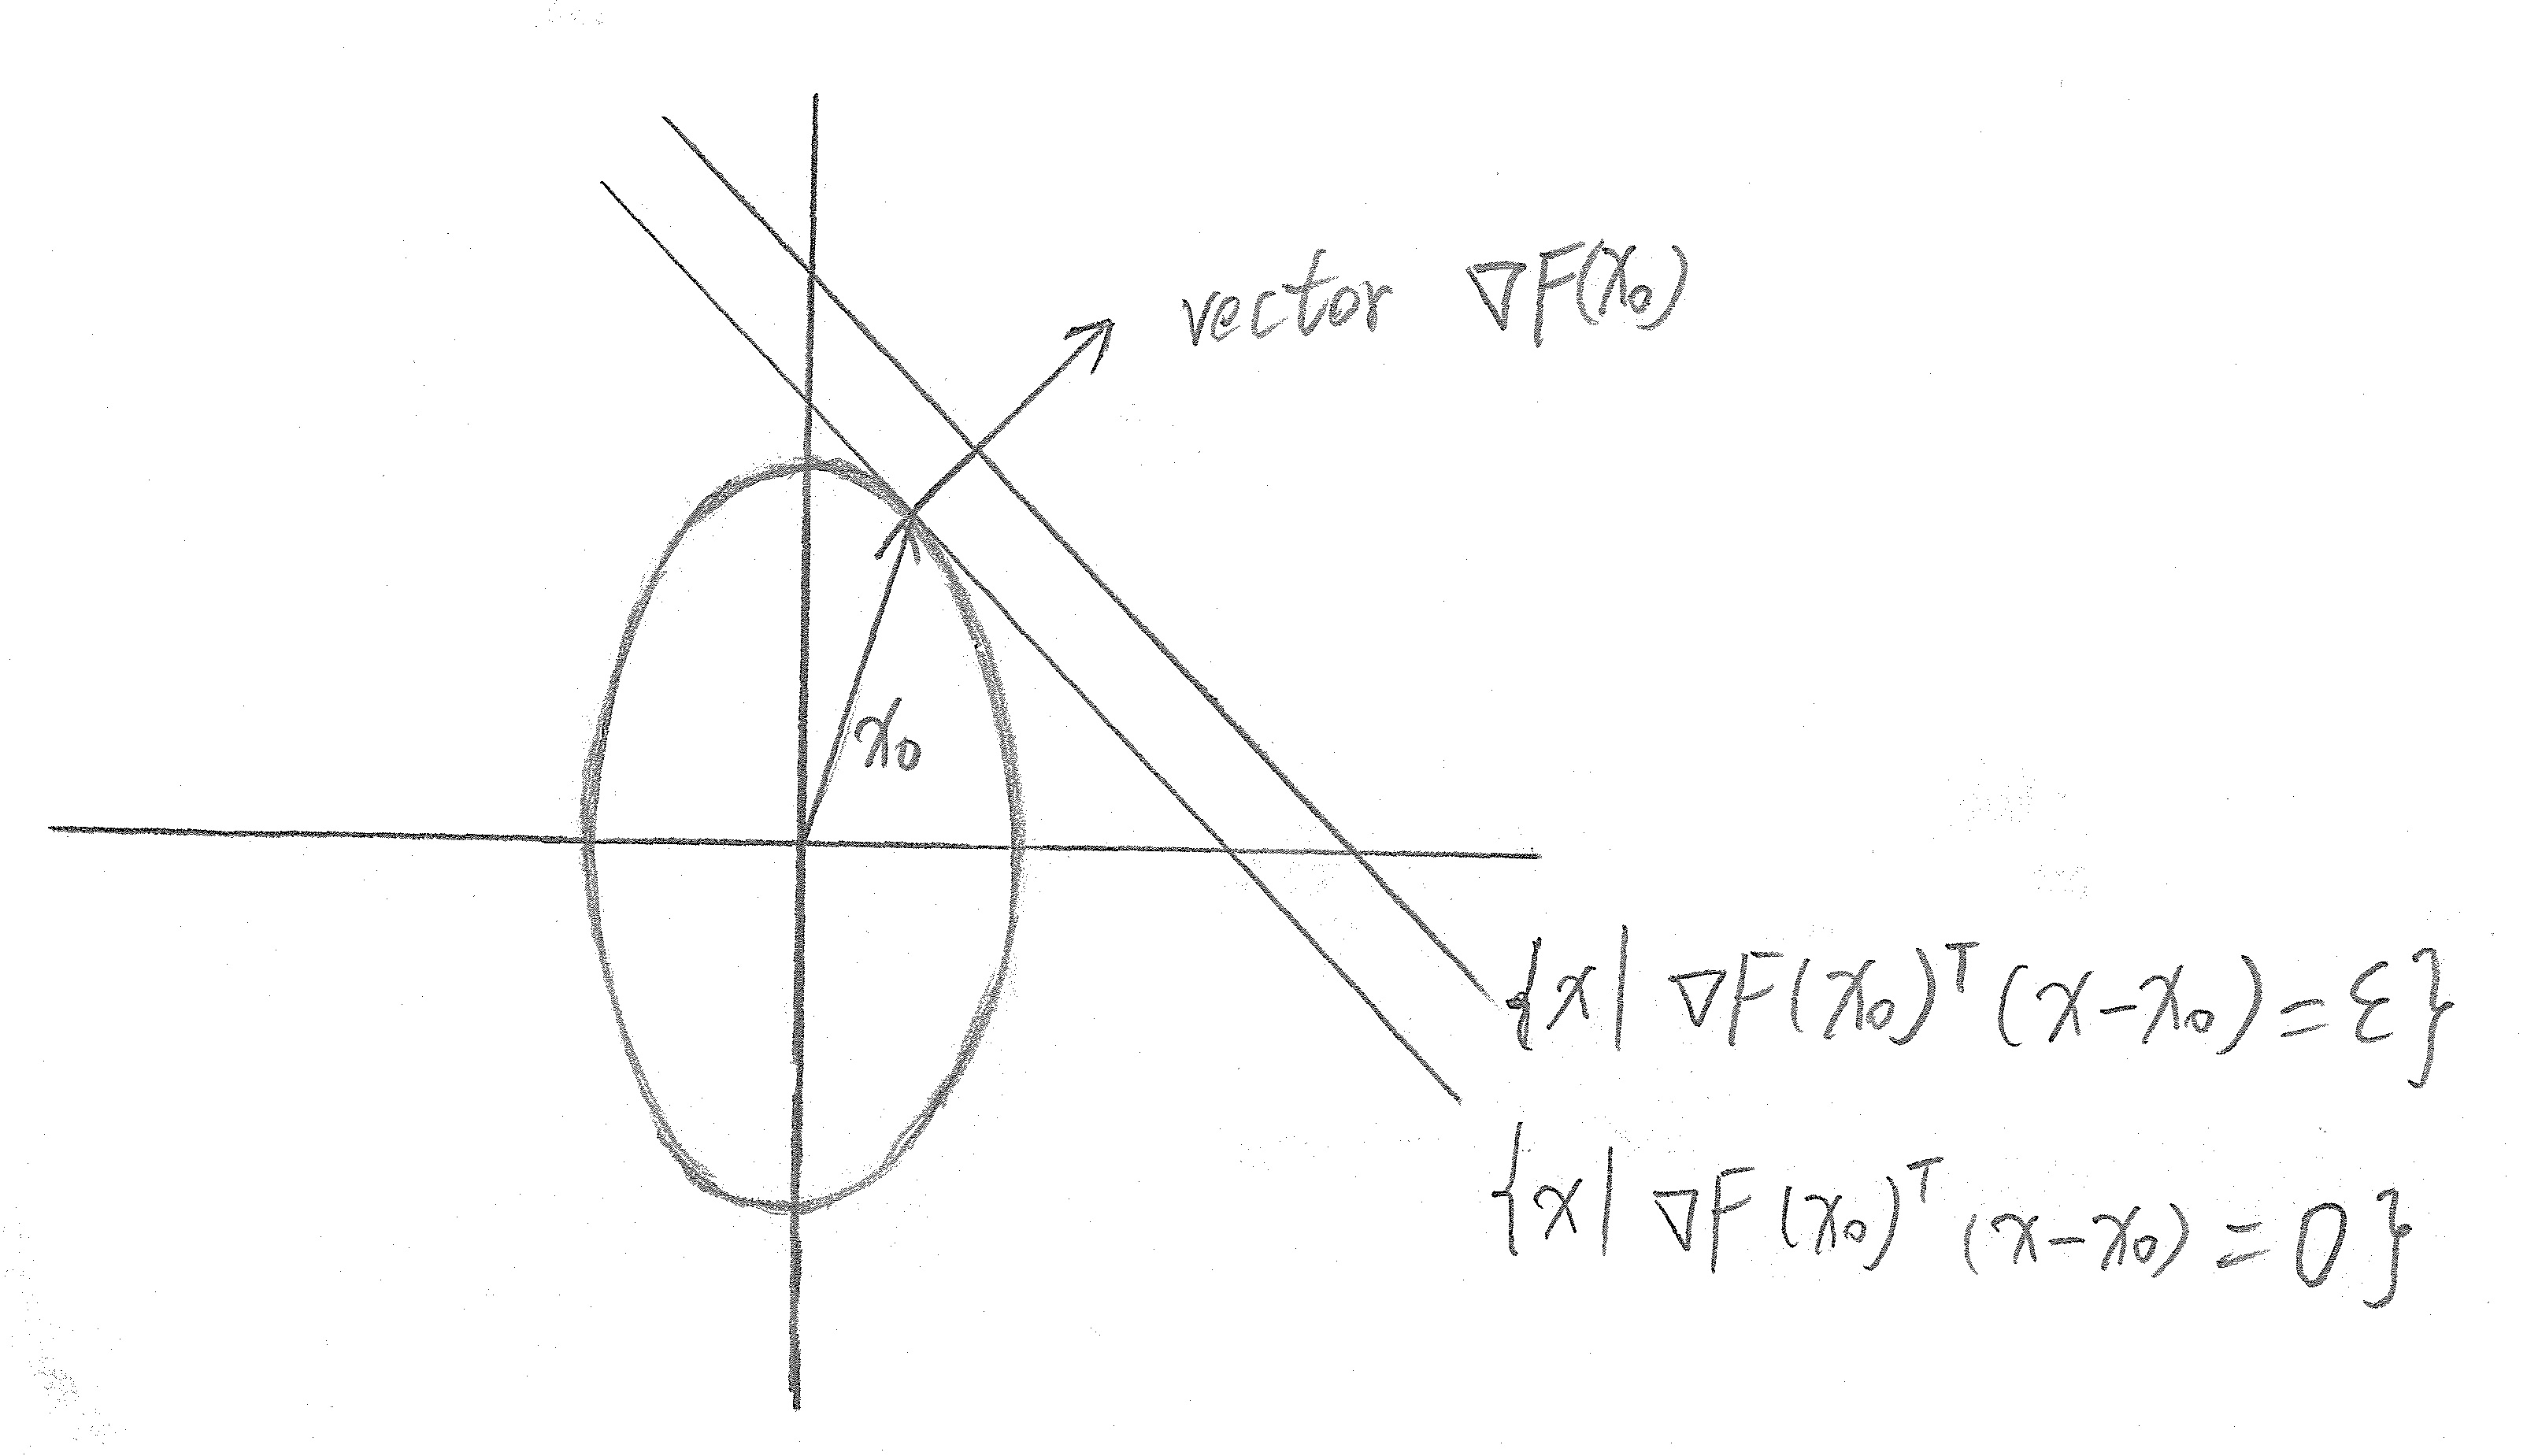 vector ∇F(x₀)
x₀
{x| ∇F(x₀)ᵀ(x-x₀)=ε}
{x| ∇F(x₀)ᵀ(x-x₀)=0}